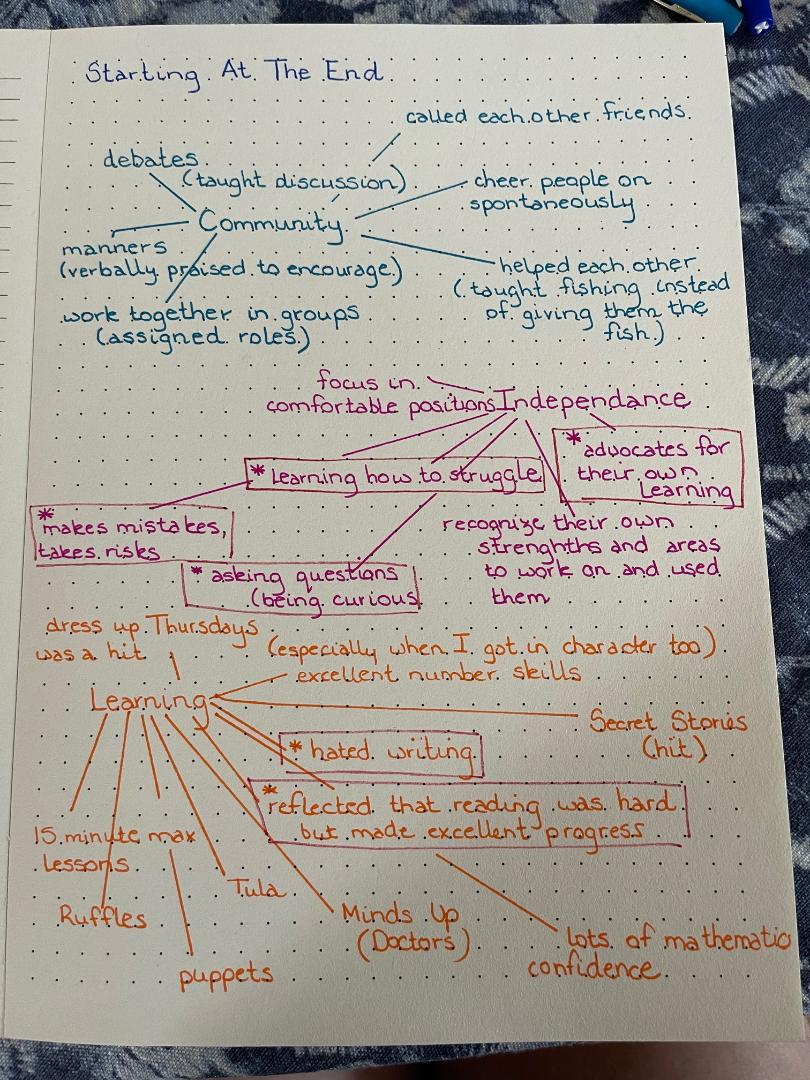 Starting At The End
called each other friends
debates
(taught discussion)
cheer people on
spontaneously
Community
manners
(verbally praised to encourage)
helped each other
(taught fishing instead
of giving them the
fish)
work together in groups
(assigned roles)
focus in
comfortable positions
Independance
* advocates for
their own
Learning
* Learning how to struggle
*
makes mistakes,
takes risks
recognize their own
strenghths and areas
to work on and used
them
* asking questions
(being curious
dress up Thursdays
was a hit
(especially when I got in character too)
excellent number skills
Learning
Secret Stories
(hit)
* hated writing
*
reflected that reading was hard
but made excellent progress
15 minute max
lessons
Tula
Ruffles
Minds Up
(Doctors)
lots of mathematic
confidence
puppets